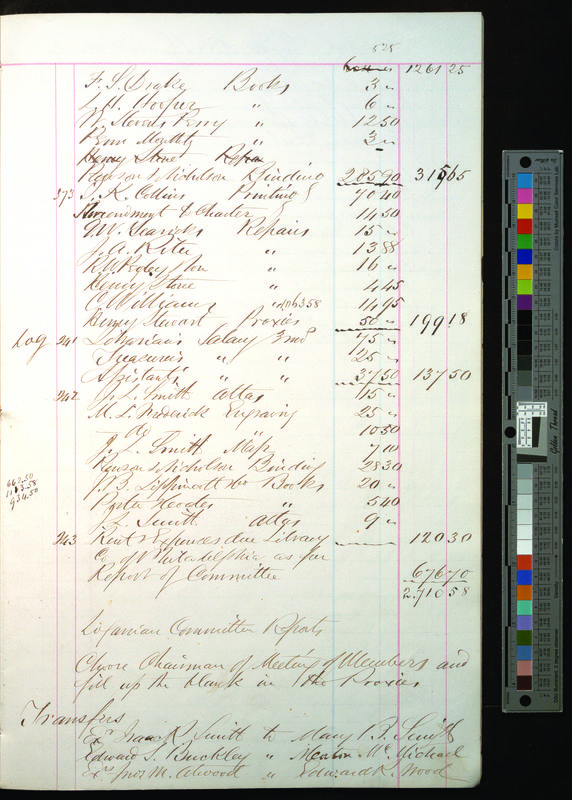 525
1261 25
F. S. Drake Books 3 "
L. H. Hosper " 6 "
W. Stevens Perry " 12 50
Penn Monthly " 3 "
Henry Stone
Ranson & Nicholson Binding 285 90 315 65
373 T. K. Collins Printing & 70 40
Amendment to Charter 14 50
Repairs 15 "
J. A. Kite " 13 88
16 "
Henry Stone " 4 45
C. Williams " 406358 14 95
Henry Stewart Proxies 50 " 199 18
Log 241 Librarian's Salary 3 mos 75 "
Treasurer's " " 25 "
Assistants " " 37 50 137 50
242 J. L. Smith Atlas 15 "
M. L. Frederick Engraving 25 "
Do " 10 50
J. L. Smith Map 7 10
Ranson & Nicholson Binding 28 30
J. B. Lippincott & Co Books 20 "
Porter & Coates " 5 40
J. L. Smith Atlas 9 " 120 30
662.50
1113.58
934.50
243 Rent & Expenses due Library
Co of Philadelphia as per
Report of Committee 676 70
2.710 58
Loganian Committee Reports
Choose Chairman of Meeting of Members and
fill up the blank in the Proxies
Transfers
Exr Isaac R. Smith to Mary B. Smith
Edward S. Buckley " Morton McMichael
Exs Jno. M. Atwood " Edward R. Wood